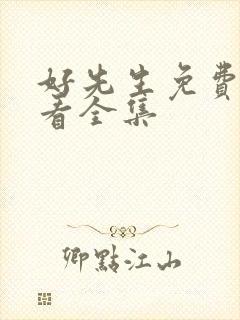 好先生免費
看全集
卿點江山